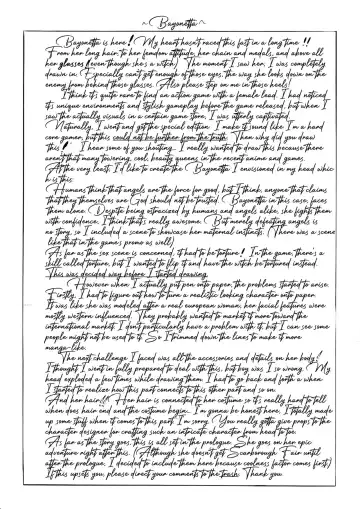 ~ Bayonetta ~
Bayonetta is here! (My heart hasn't raced this fast in a long time!!
From her long hair, to her femdom attitude, her chain and medals, and above all
her glasses (even though she's a witch). The moment I saw her, I was completely
drawn in. Especially can't get enough of those eyes, the way she looks down on the
enemy from behind those glasses. (Also please step on me in those heels)
I think it's quite rare to find an action game with a female lead. I had noticed
it's unique environments and stylish gameplay before the game released, but when I
saw the actually visuals in a certain game store, I was utterly captivated.
Naturally, I went and got the special edition. I make it sound like I'm a hard
core gamer, but this could not be further from the truth. Then why did you draw
this!... I hear some of you shouting. I really wanted to draw this because there
aren't that many towering, cool, beauty queens in the recent anime and games.
At the very least, I'd like to create the Bayonetta I envisioned in my head which
is this.
Humans think that angels are the force for good, but I think, anyone that claims
that they themselves are God should not be trusted. Bayonetta in this case, faces
them alone. Despite being ostracized by humans and angels alike, she fights them
with confidence. I think that's really awesome. But merely defeating angels is
no story, so I included a scene to showcase her maternal instincts. (There was a scene
like that in the game's promo as well)
As far as the sex scene is concerned, it had to be torture! In the game, there's a
skill called torture, but I wanted to flip it and have the witch be tortured instead.
This was decided way before I started drawing.
However when I actually put pen into paper, the problems started to arise.
Firstly, I had to figure out how to turn a realistic looking character into paper.
It was like she was modeled after a real european woman, her facial features were
mostly western influenced. They probably wanted to market it more toward the
international market. I don't particularly have a problem with it, but I can see some
people might not be used to it. So I trimmed down the lines to make it more
manga-like.
The next challenge I faced was all the accessories and details on her body!
I thought I went in fully prepared to deal with this, but boy was I so wrong. My
head exploded a few times while drawing them. I had to go back and forth a when
I started to realize how this part connects to this other part and so on.
And her hair!! Her hair is connected to her costume so it's really hard to tell
when does hair end and the costume begin... I'm gonna be honest here, I totally made
up some stuff when it comes to this part. I'm sorry. You really gotta give props to the
character designer for crafting such an intricate character from head to toe.
As far as the story goes, this is all set in the prologue. She goes on her epic
adventure right after this. (Although she doesn't get Scarborough Fair until
after the prologue, I decided to include them here because coolness factor comes first)
If this upsets you, please direct your comments to the trash. Thank you.